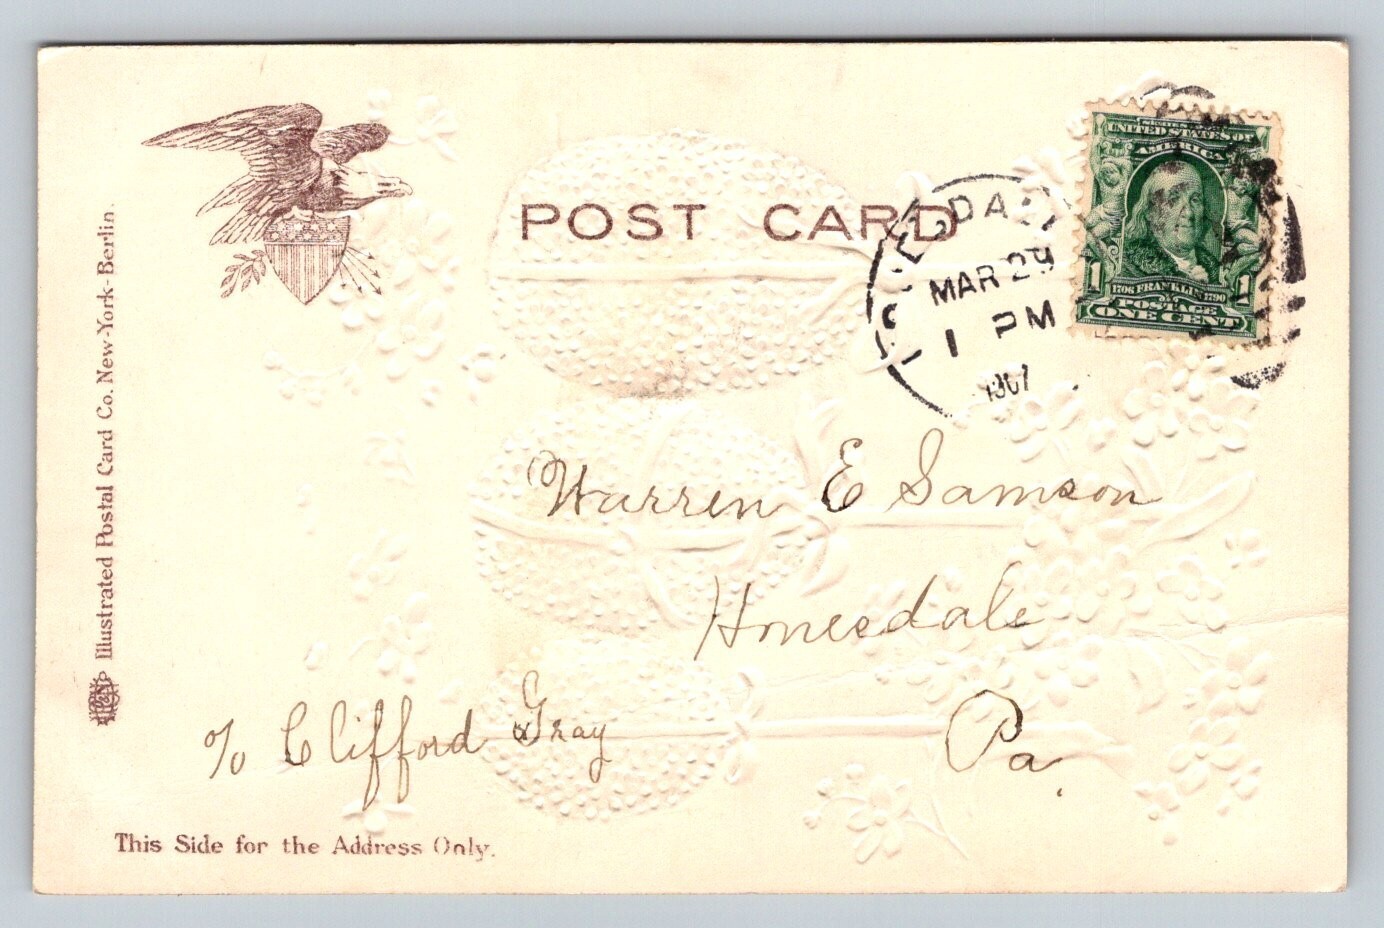 POST CARD
MAR 29
1 PM
1907
SERIES 1902
UNITED STATES OF
AMERICA
1 1
1706 FRANKLIN 1790
POSTAGE
ONE CENT
Illustrated Postal Card Co. New-York-Berlin.
Warren E Samson
Honesdale
Pa.
c/o Clifford Gray
This Side for the Address Only.